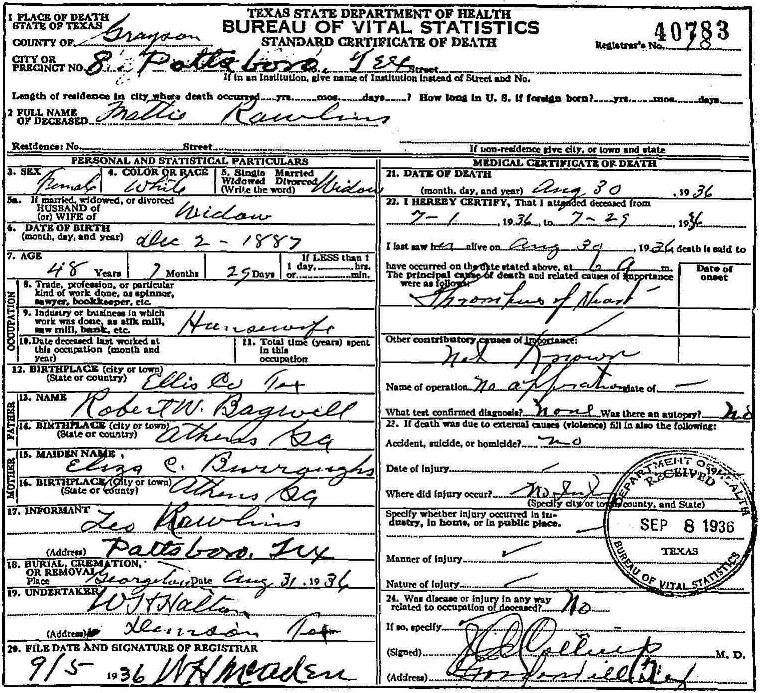 TEXAS STATE DEPARTMENT OF HEALTH
BUREAU OF VITAL STATISTICS
STANDARD CERTIFICATE OF DEATH
40783
Registrar's No. 18
1 PLACE OF DEATH
STATE OF TEXAS
COUNTY OF Grayson
CITY OR
PRECINCT NO. 8 Pottsboro, Tex Street
If in an Institution, give name of Institution instead of Street and No.
Length of residence in city where death occurred yrs. mos. days? How long in U. S. if foreign born? yrs. mos. days
2 FULL NAME
OF DECEASED Mattie Rawlins
Residence: No. Street
If non-residence give city, or town and state
PERSONAL AND STATISTICAL PARTICULARS
3. SEX Female
4. COLOR OR RACE White
5. Single Married
Widowed Divorced
(Write the word) Widow
5a. If married, widowed, or divorced
HUSBAND OF
(or) WIFE OF Widow
6. DATE OF BIRTH
(month, day, and year) Dec 2 - 1887
7. AGE
48 Years 7 Months 29 Days
If LESS than 1
1 day, hrs.
or min.
OCCUPATION
8. Trade, profession, or particular
kind of work done, as spinner,
sawyer, bookkeeper, etc.
9. Industry or business in which
work was done, as silk mill,
saw mill, bank, etc. Housewife
10. Date deceased last worked at
this occupation (month and
year)
11. Total time (years) spent
in this
occupation
12. BIRTHPLACE (city or town)
(State or country) Ellis Co Tex
FATHER
13. NAME Robert W. Bagwell
14. BIRTHPLACE (city or town)
(State or country) Athens Ga
MOTHER
15. MAIDEN NAME Eliza C. Burroughs
16. BIRTHPLACE (City or town)
(State or country) Athens Ga
17. INFORMANT Leo Rawlins
(Address) Pottsboro, Tex
18. BURIAL, CREMATION,
OR REMOVAL
Place Georgetown Date Aug 31, 1936
19. UNDERTAKER
(Address) Denison Tex
20. FILE DATE AND SIGNATURE OF REGISTRAR
9/5 1936 WH McAden
MEDICAL CERTIFICATE OF DEATH
21. DATE OF DEATH
(month, day, and year) Aug 30, 1936
22. I HEREBY CERTIFY, That I attended deceased from
7-1 1936 to 7-29 1936
I last saw her alive on Aug 30, 1936 death is said to
have occurred on the date stated above, at 6 a m.
The principal cause of death and related causes of importance
were as follows:
Date of
onset
Thrombus of Heart
Other contributory causes of importance:
Not Known
Name of operation no operation date of —
What test confirmed diagnosis? None Was there an autopsy? No
23. If death was due to external causes (violence) fill in also the following:
Accident, suicide, or homicide? no
Date of injury
Where did injury occur?
(Specify city or town, county, and State)
Specify whether injury occurred in industry, in home, or in public place.
Manner of injury
Nature of injury
24. Was disease or injury in any way
related to occupation of deceased? No
If so, specify
(Signed) M. D.
(Address) Tex
DEPARTMENT OF HEALTH
RECEIVED
SEP 8 1936
TEXAS
BUREAU OF VITAL STATISTICS